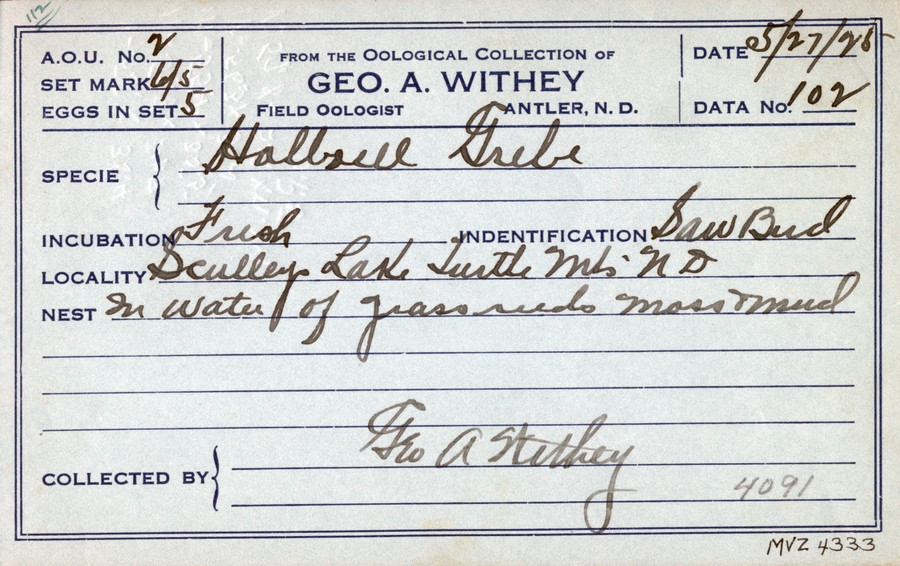 112
A.O.U. No. 2
SET MARK 6/5
EGGS IN SET 5
FROM THE OOLOGICAL COLLECTION OF
GEO. A. WITHEY
FIELD OOLOGIST ANTLER, N. D.
DATE 5/27/25
DATA No. 102
SPECIE Holboell Grebe
INCUBATION Fresh INDENTIFICATION Saw Bird
LOCALITY Sculleys Lake Turtle Mts N D
NEST In water of grass reeds moss & mud
COLLECTED BY Geo A Withey
4091
MVZ 4333